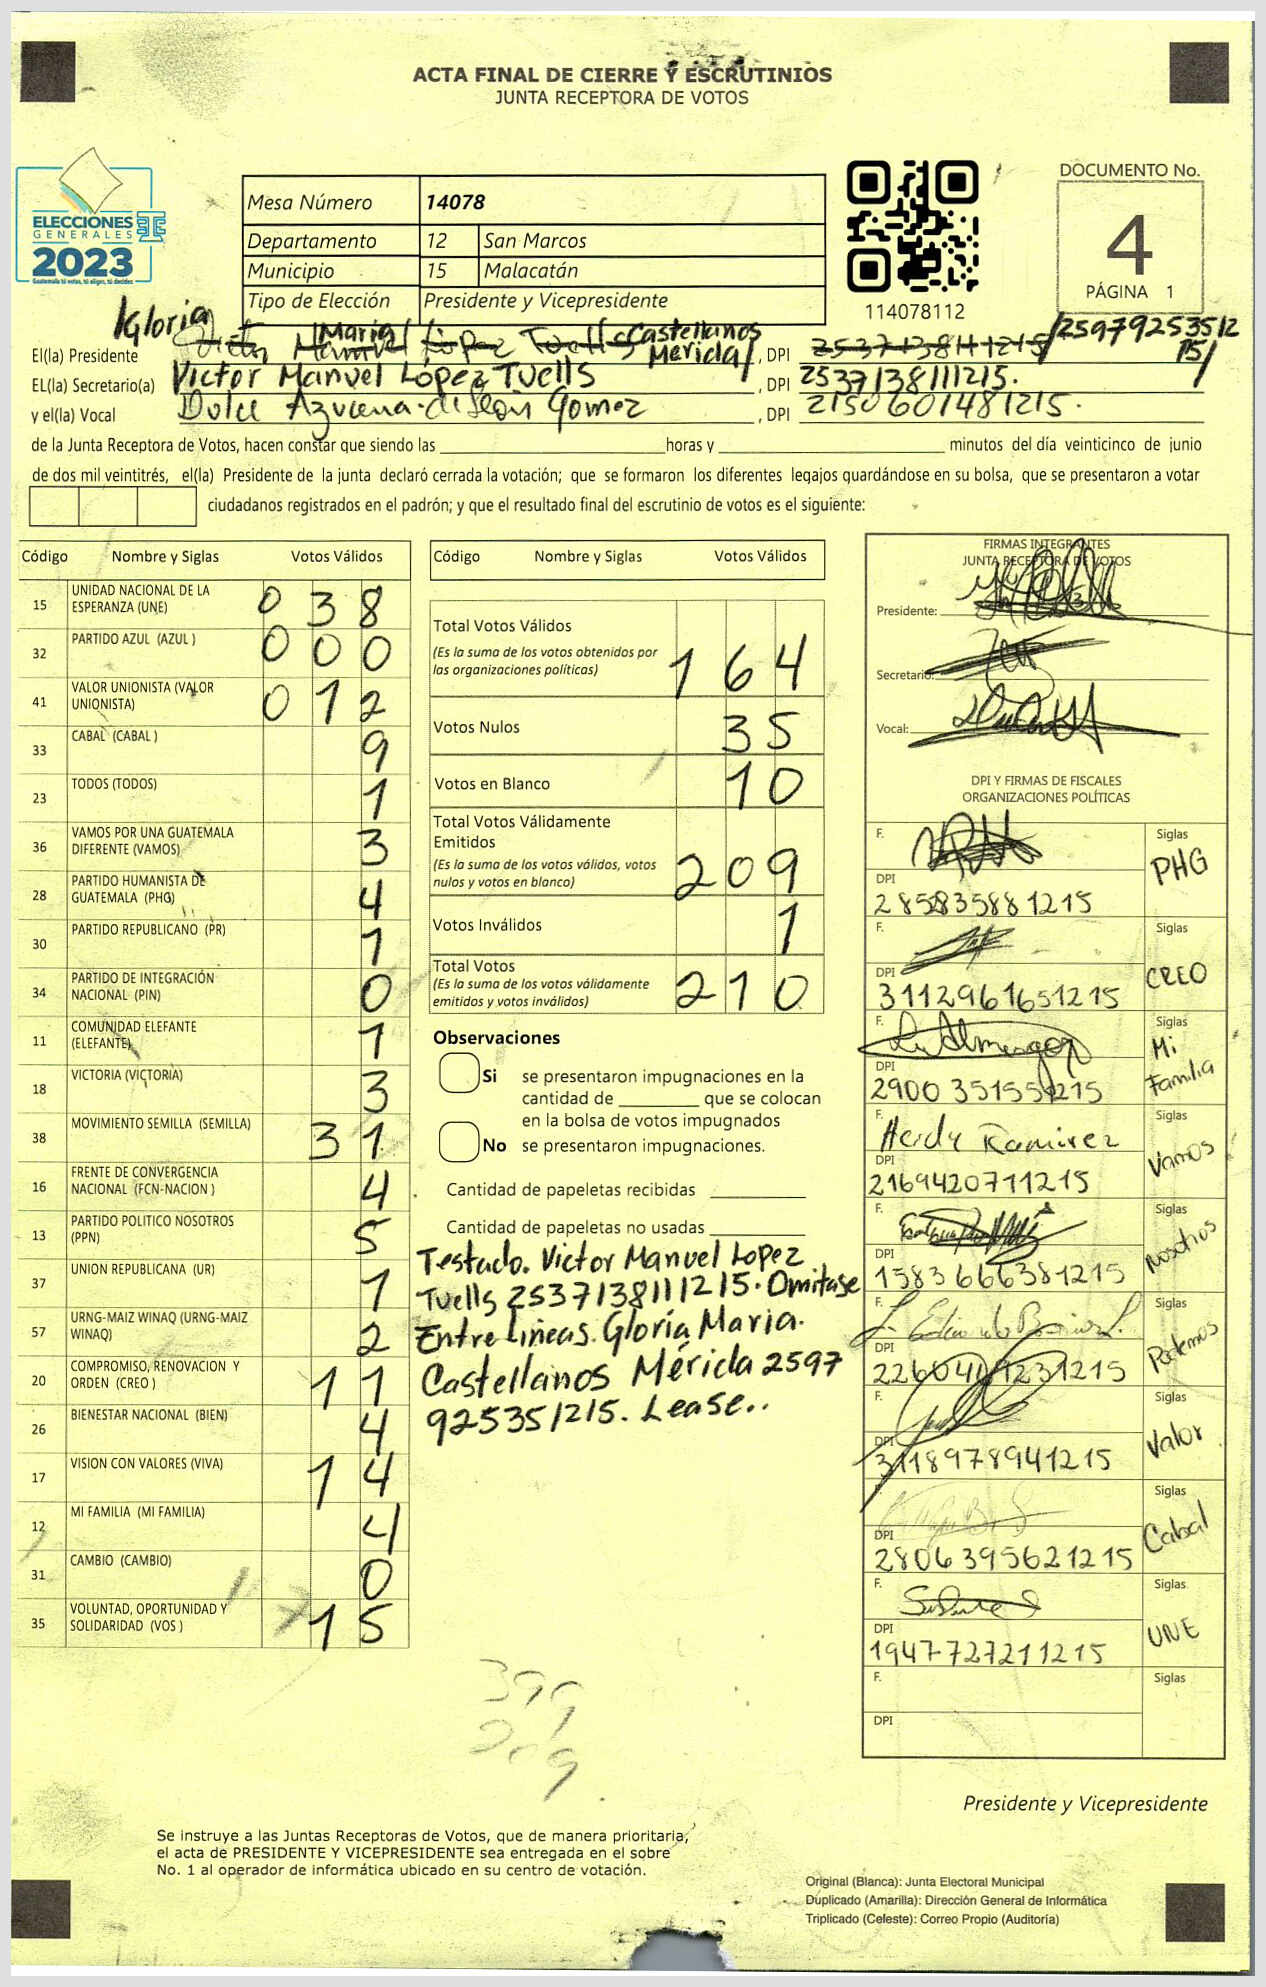 ACTA FINAL DE CIERRE Y ESCRUTINIOS
JUNTA RECEPTORA DE VOTOS
ELECCIONES
GENERALES
2023
Guatemala tú votas, tú eliges, tú decides
Mesa Número 14078
Departamento 12 San Marcos
Municipio 15 Malacatán
Tipo de Elección Presidente y Vicepresidente
114078112
DOCUMENTO No.
4
PÁGINA 1
Gloria María Castellanos 2597925351215
El(la) Presidente Victor Manuel López Tuells Mérida, DPI 2537138111215
EL(la) Secretario(a) Victor Manuel López Tuells, DPI 2537138111215.
y el(la) Vocal Dulce Azucena de León Gomez, DPI 2150601481215.
de la Junta Receptora de Votos, hacen constar que siendo las horas y minutos del día veinticinco de junio
de dos mil veintitrés, el(la) Presidente de la junta declaró cerrada la votación; que se formaron los diferentes legajos guardándose en su bolsa, que se presentaron a votar
ciudadanos registrados en el padrón; y que el resultado final del escrutinio de votos es el siguiente:
Código Nombre y Siglas Votos Válidos
15 UNIDAD NACIONAL DE LA ESPERANZA (UNE) 038
32 PARTIDO AZUL (AZUL ) 000
41 VALOR UNIONISTA (VALOR UNIONISTA) 012
33 CABAL (CABAL ) 9
23 TODOS (TODOS) 1
36 VAMOS POR UNA GUATEMALA DIFERENTE (VAMOS) 3
28 PARTIDO HUMANISTA DE GUATEMALA (PHG) 4
30 PARTIDO REPUBLICANO (PR) 1
34 PARTIDO DE INTEGRACIÓN NACIONAL (PIN) 0
11 COMUNIDAD ELEFANTE (ELEFANTE) 1
18 VICTORIA (VICTORIA) 3
38 MOVIMIENTO SEMILLA (SEMILLA) 31
16 FRENTE DE CONVERGENCIA NACIONAL (FCN-NACION ) 4
13 PARTIDO POLITICO NOSOTROS (PPN) 5
37 UNION REPUBLICANA (UR) 1
57 URNG-MAIZ WINAQ (URNG-MAIZ WINAQ) 2
20 COMPROMISO, RENOVACION Y ORDEN (CREO ) 11
26 BIENESTAR NACIONAL (BIEN) 4
17 VISION CON VALORES (VIVA) 14
12 MI FAMILIA (MI FAMILIA) 4
31 CAMBIO (CAMBIO) 0
35 VOLUNTAD, OPORTUNIDAD Y SOLIDARIDAD (VOS ) 15
Código Nombre y Siglas Votos Válidos
Total Votos Válidos 164
(Es la suma de los votos obtenidos por
las organizaciones políticas)
Votos Nulos 35
Votos en Blanco 10
Total Votos Válidamente
Emitidos 209
(Es la suma de los votos válidos, votos
nulos y votos en blanco)
Votos Inválidos 1
Total Votos 210
(Es la suma de los votos válidamente
emitidos y votos inválidos)
Observaciones
Si se presentaron impugnaciones en la
cantidad de que se colocan
en la bolsa de votos impugnados
No se presentaron impugnaciones.
Cantidad de papeletas recibidas
Cantidad de papeletas no usadas
Testado. Victor Manuel Lopez
Tuells 2537138111215. Omitase
Entre Líneas. Gloria Maria.
Castellanos Mérida 2597
925351215. Lease..
399
209
FIRMAS INTEGRANTES
JUNTA RECEPTORA DE VOTOS
Presidente:
Secretario:
Vocal:
DPI Y FIRMAS DE FISCALES
ORGANIZACIONES POLÍTICAS
F. Siglas PHG
DPI 285835881215
F. Siglas CREO
DPI 3112961651215
F. Siglas Mi Familia
DPI 2900351551215
F. Heidy Ramirez Siglas Vamos
DPI 2169420711215
F. Siglas Nosotros
DPI 1583666381215
F. Siglas Podemos
DPI 2260401231215
F. Siglas Valor
DPI 3118978941215
F. Siglas Cabal
DPI 2806395621215
F. Siglas UNE
DPI 1947727211215
F. Siglas
DPI
Presidente y Vicepresidente
Se instruye a las Juntas Receptoras de Votos, que de manera prioritaria,
el acta de PRESIDENTE Y VICEPRESIDENTE sea entregada en el sobre
No. 1 al operador de informática ubicado en su centro de votación.
Original (Blanca): Junta Electoral Municipal
Duplicado (Amarilla): Dirección General de Informática
Triplicado (Celeste): Correo Propio (Auditoría)